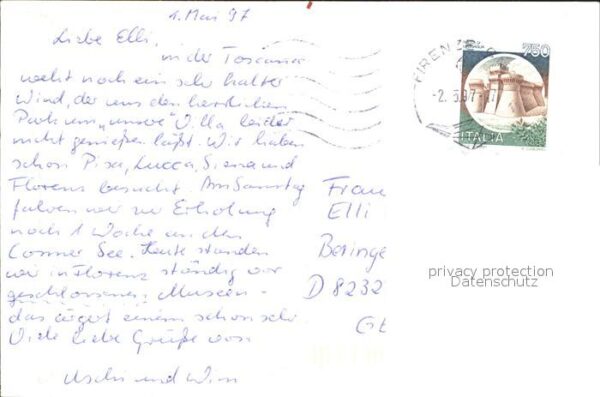 1. Mai 97
Liebe Elli,
in der Toscana
weht noch ein sehr kalter
Wind, der uns den herrlichen
Park um "unsere" Villa leider
nicht genießen läßt. Wir haben
schon Pisa, Lucca, Siena und
Florenz besucht. Am Samstag
fahren wir zur Erholung
noch 1 Woche an den
Comer See. Heute standen
wir in Florenz ständig vor
geschlossenen Museen -
das ärgert einen schon sehr.
Viele liebe Grüße von
Uschi und
FIRENZE
-2.5.97-17
750
ITALIA
Frau
Elli
Beringe
D 8232
privacy protection
Datenschutz